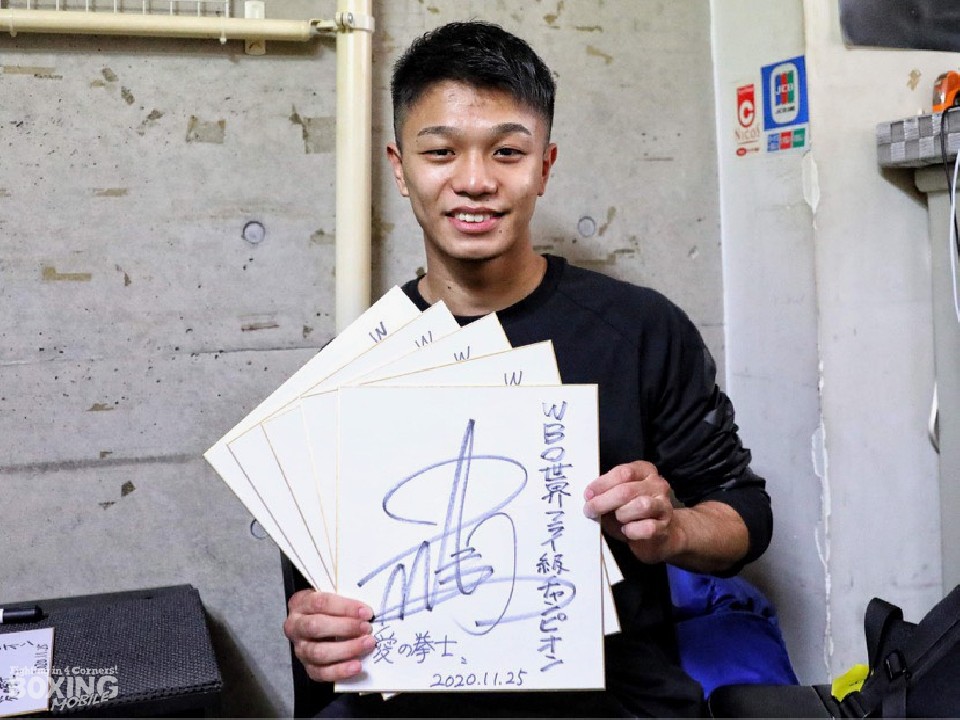 WBO世界フライ級チャンピオン
愛の拳士。
2020.11.25
W
W
W
W
NICOS
JCB
Fighting in 4 Corners!
BOXING
MOBILE